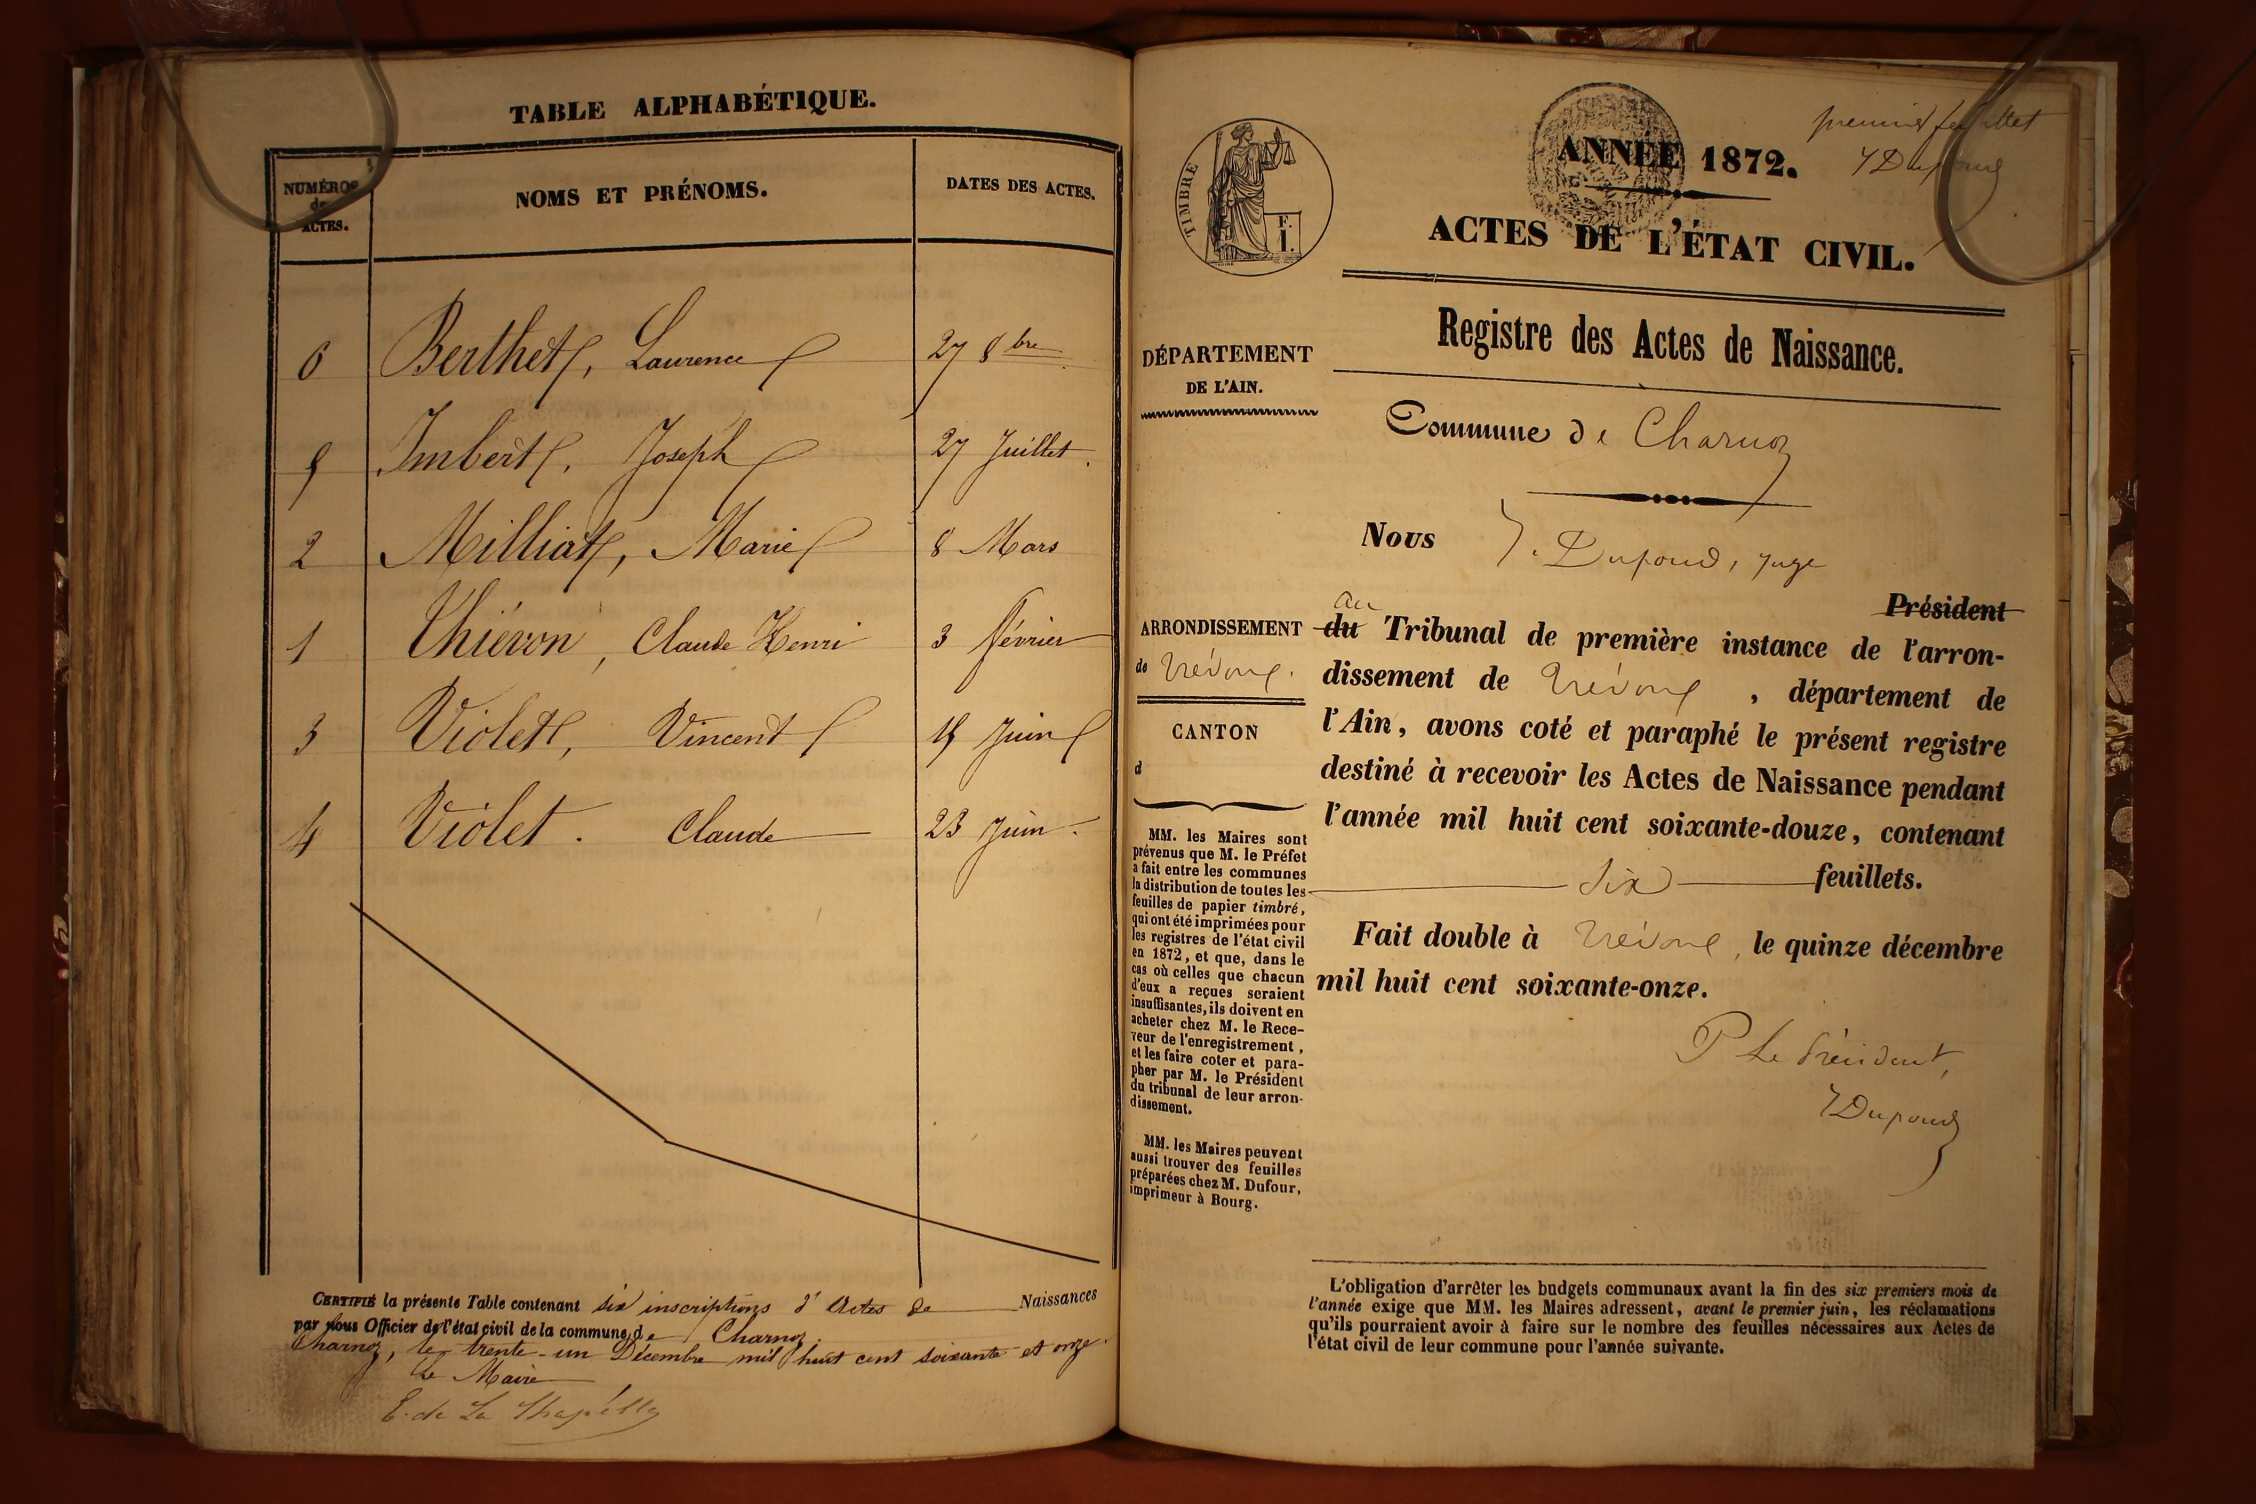 TABLE ALPHABÉTIQUE.
NUMÉROS
des
ACTES.
NOMS ET PRÉNOMS.
DATES DES ACTES.
6 Berthet, Laurence 27 8bre
5 Imbert, Joseph 27 Juillet.
2 Milliat, Marie 8 Mars
1 Thiévon, Claude Henri 3 février
3 Violet, Vincent 15 Juin
4 Violet. Claude 23 Juin.
CERTIFIÉ la présente Table contenant six inscriptions d'Actes de Naissances
par nous Officier de l'état civil de la commune de Charnoz.
Charnoz, le trente-un Décembre mil huit cent soixante et onze.
Le Maire
E. de La Chapelle
premier feuillet
Dupond
TIMBRE
F.
1.
ANNÉE 1872.
ACTES DE L'ÉTAT CIVIL.
Registre des Actes de Naissance.
DÉPARTEMENT
DE L'AIN.
Commune de Charnoz
Nous Dupond, juge
Président
au
du Tribunal de première instance de l'arron-
dissement de Trévoux, département de
l'Ain, avons coté et paraphé le présent registre
destiné à recevoir les Actes de Naissance pendant
l'année mil huit cent soixante-douze, contenant
six feuillets.
Fait double à Trévoux, le quinze décembre
mil huit cent soixante-onze.
P Le Président,
Dupond
ARRONDISSEMENT
de Trévoux.
CANTON
d
MM. les Maires sont
prévenus que M. le Préfet
a fait entre les communes
la distribution de toutes les
feuilles de papier timbré,
qui ont été imprimées pour
les registres de l'état civil
en 1872, et que, dans le
cas où celles que chacun
d'eux a reçues seraient
insuffisantes, ils doivent en
acheter chez M. le Rece-
veur de l'enregistrement,
et les faire coter et para-
pher par M. le Président
du tribunal de leur arron-
dissement.
MM. les Maires peuvent
aussi trouver des feuilles
préparées chez M. Dufour,
imprimeur à Bourg.
L'obligation d'arrêter les budgets communaux avant la fin des six premiers mois de
l'année exige que MM. les Maires adressent, avant le premier juin, les réclamations
qu'ils pourraient avoir à faire sur le nombre des feuilles nécessaires aux Actes de
l'état civil de leur commune pour l'année suivante.